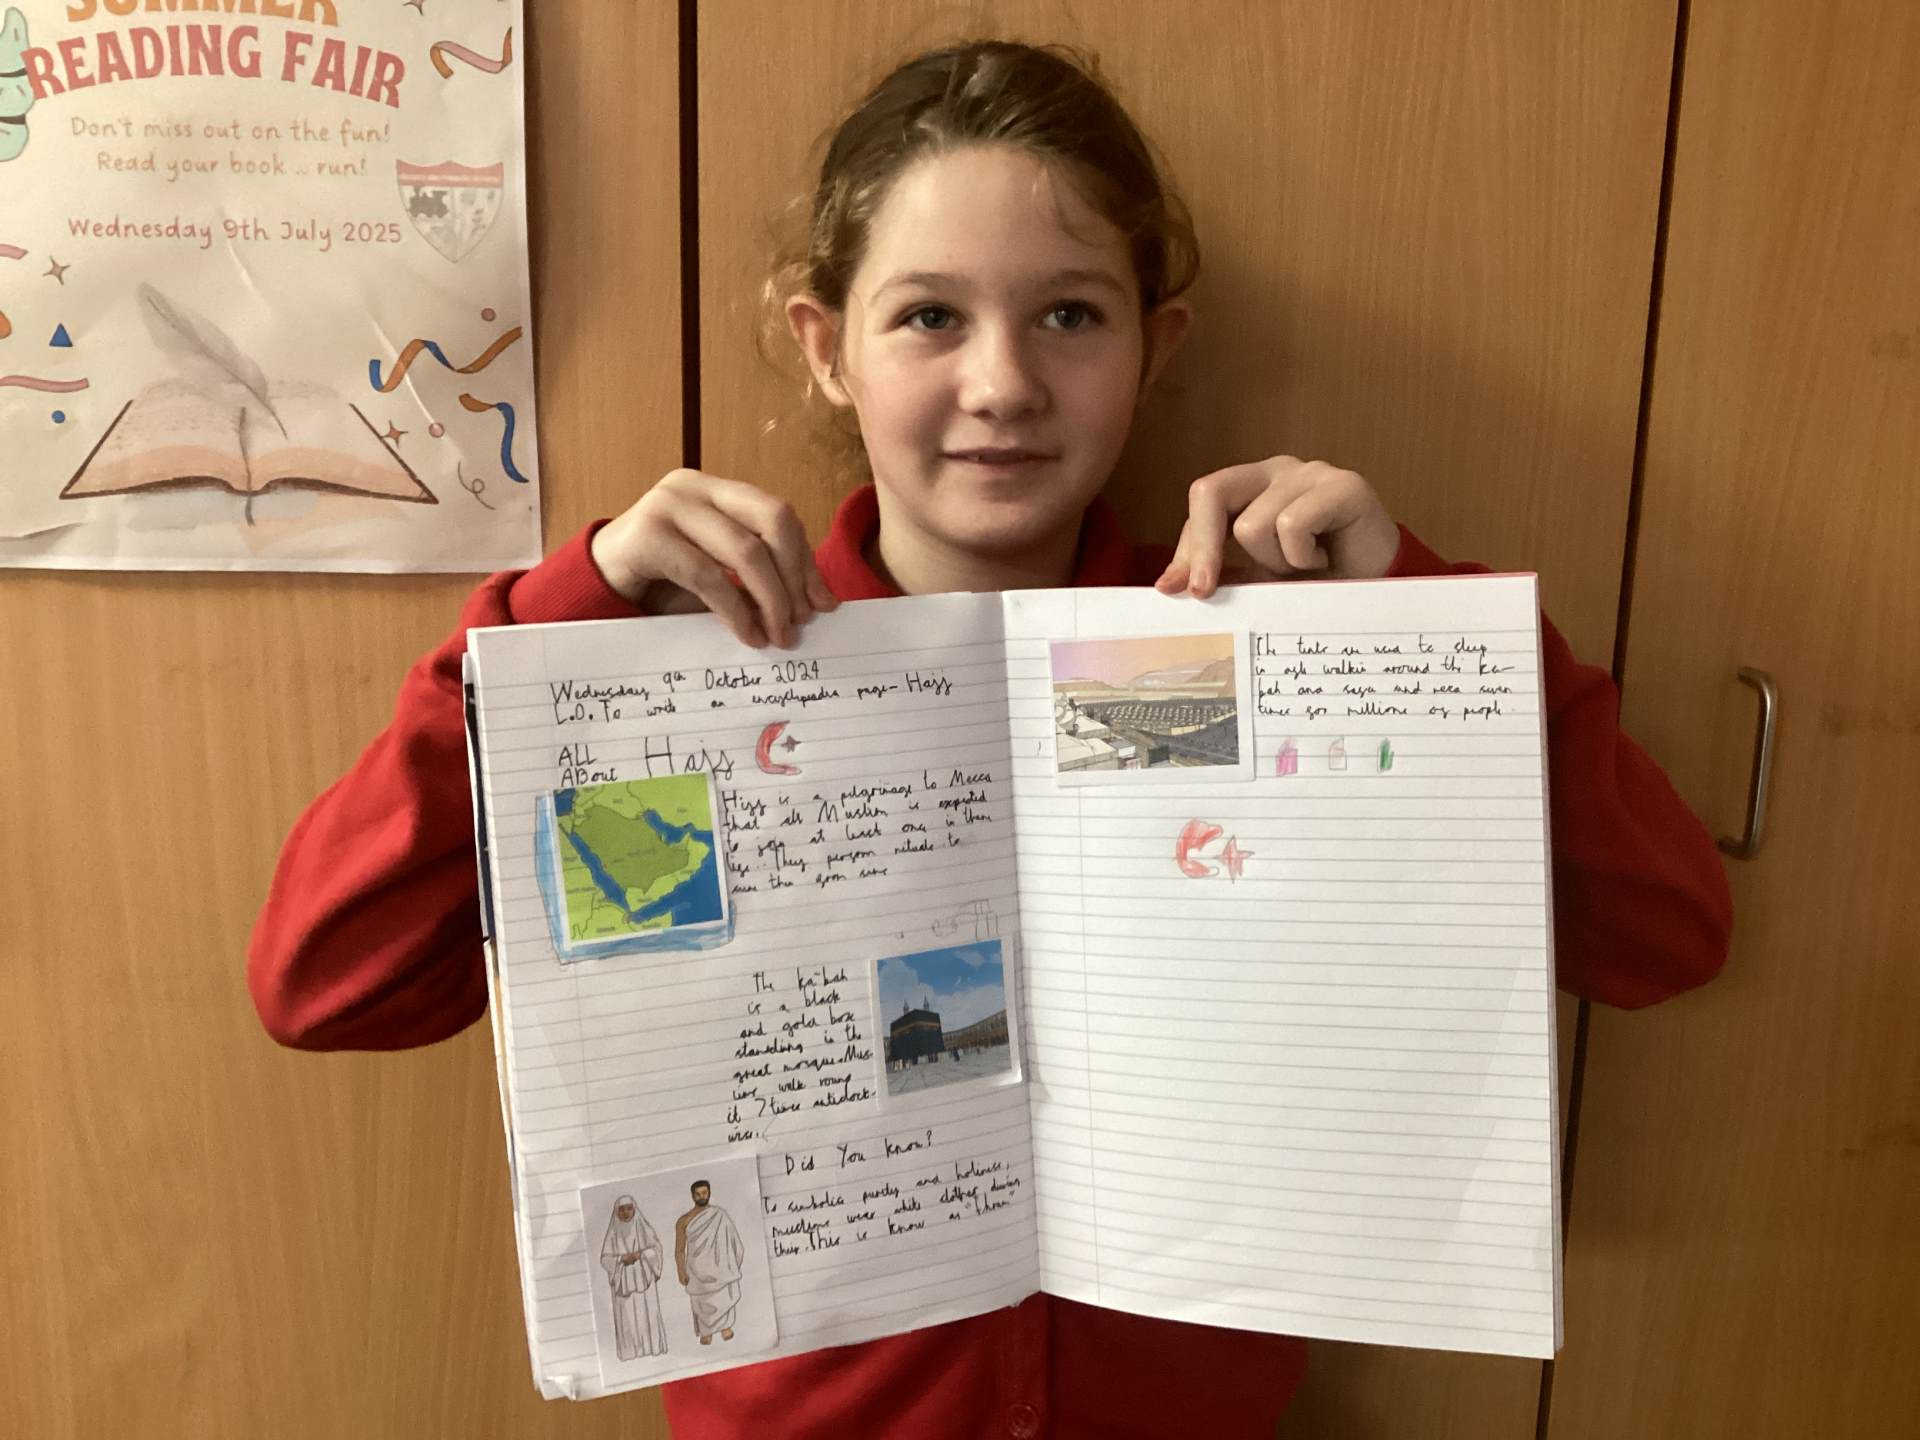 SUMMER
READING FAIR
Don't miss out on the fun!
Read your book .. run!
Wednesday 9th July 2025
Wednesday 9th October 2024
L.O. To write an encyclopaedia page- Hajj
ALL
ABout Hajj
Hijj is a pilgrimage to Mecca
that all Muslim is expected
to at least one in there
They perform rituals to
The ka-bah
is a black
and gold box
standing in the
great mosque. Mus-
lims walk round
it 7 times anticlock-
wise.
Did You know?
To symbolic purity and holiness,
muslims wear white clothes during
their. This is know as "
The tents are used to sleep
in walkin around the ka-
bah and seven
times for millions of people.